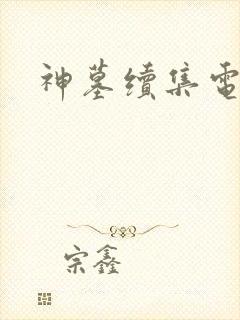 神墓續集電
宗鑫